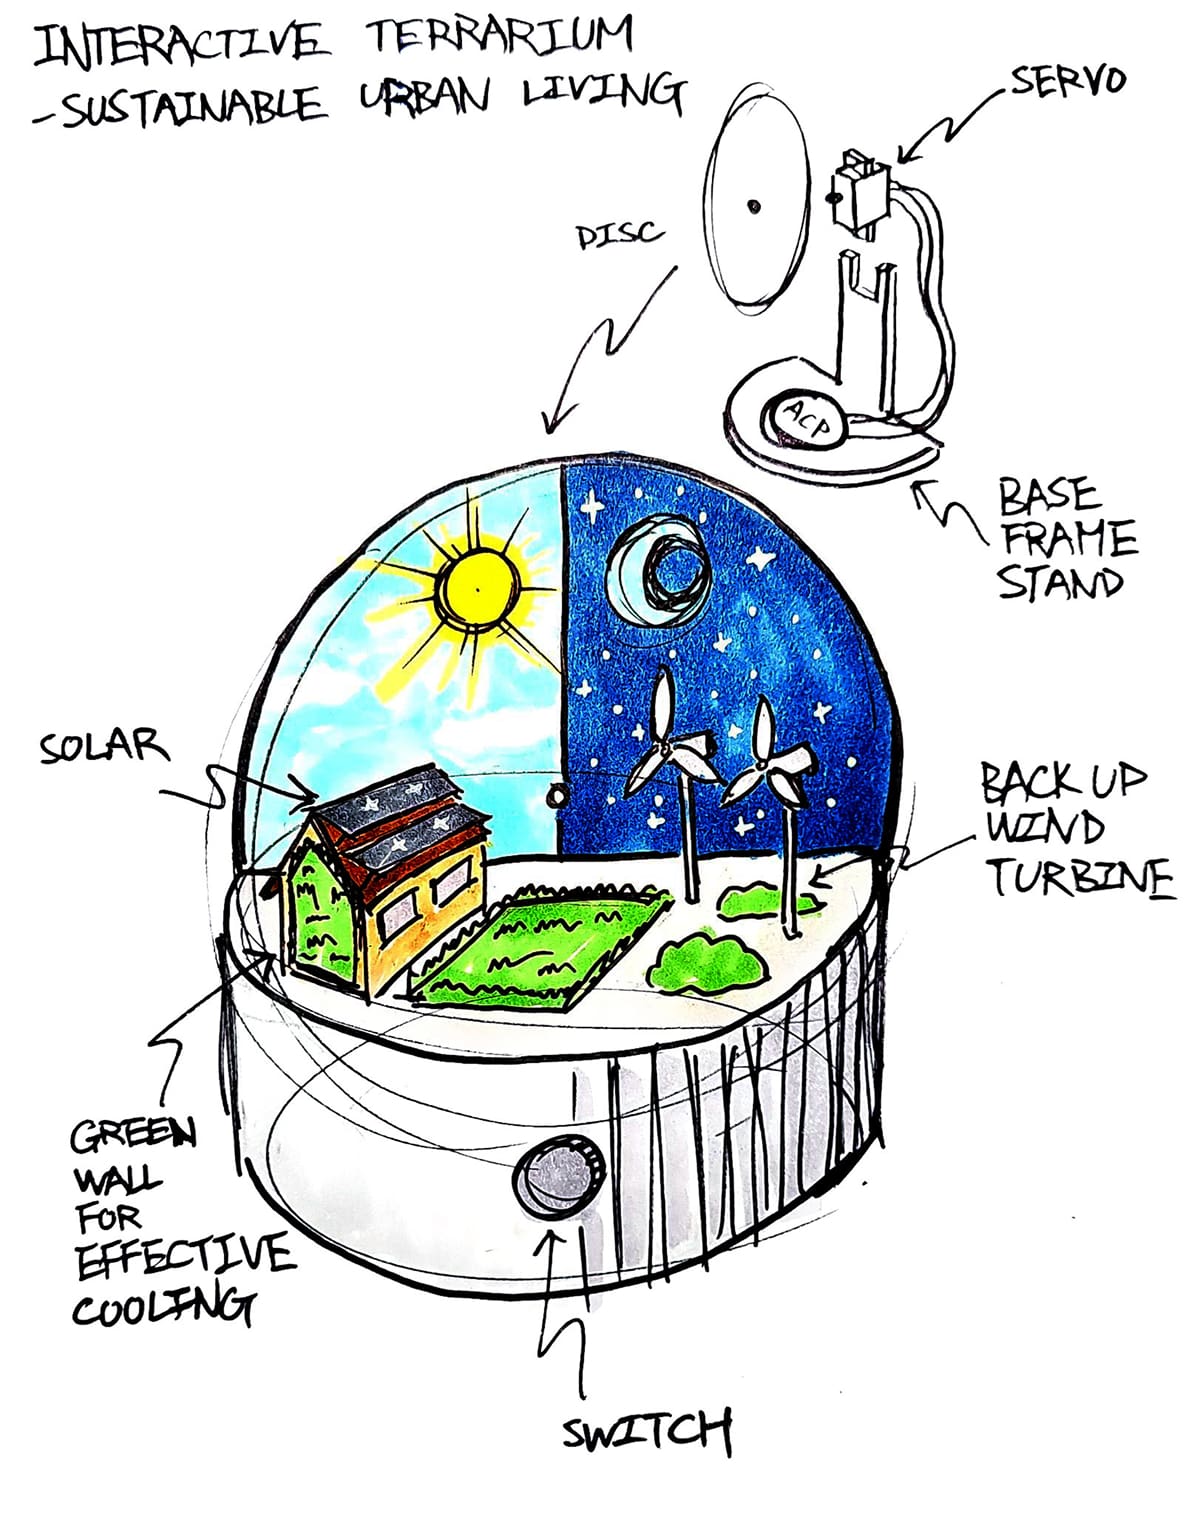 INTERACTIVE TERRARIUM
-SUSTAINABLE URBAN LIVING
SERVO
DISC
ACP
BASE
FRAME
STAND
SOLAR
BACK UP
WIND
TURBINE
GREEN
WALL
FOR
EFFECTIVE
COOLING
SWITCH